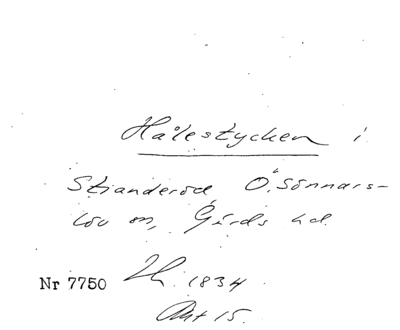 Hålestycken i
Stianderöd, Ö. Sönnars-
löv sn, Gärds hd.
Nr 7750 Lh. 1834
Akt 15.